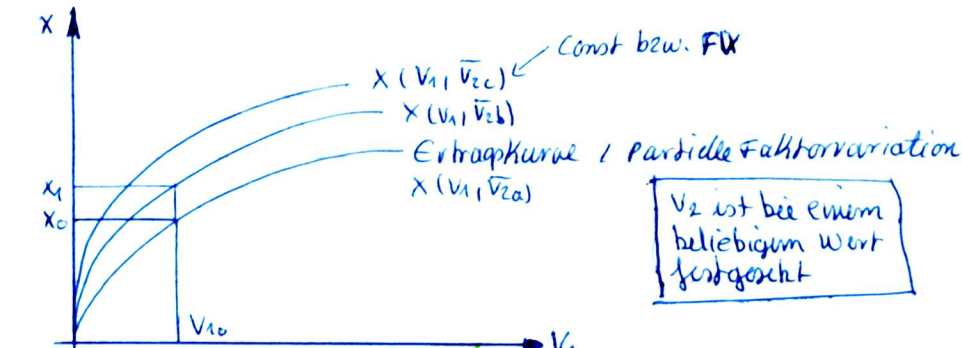 X
Const bzw. FIX
X (V1, V̅2c)
X (V1, V̅2b)
Ertragskurve / Partielle Faktorvariation
X (V1, V̅2a)
X1
X0
V2 ist bei einem
beliebigem Wert
festgesetzt
V10
V1